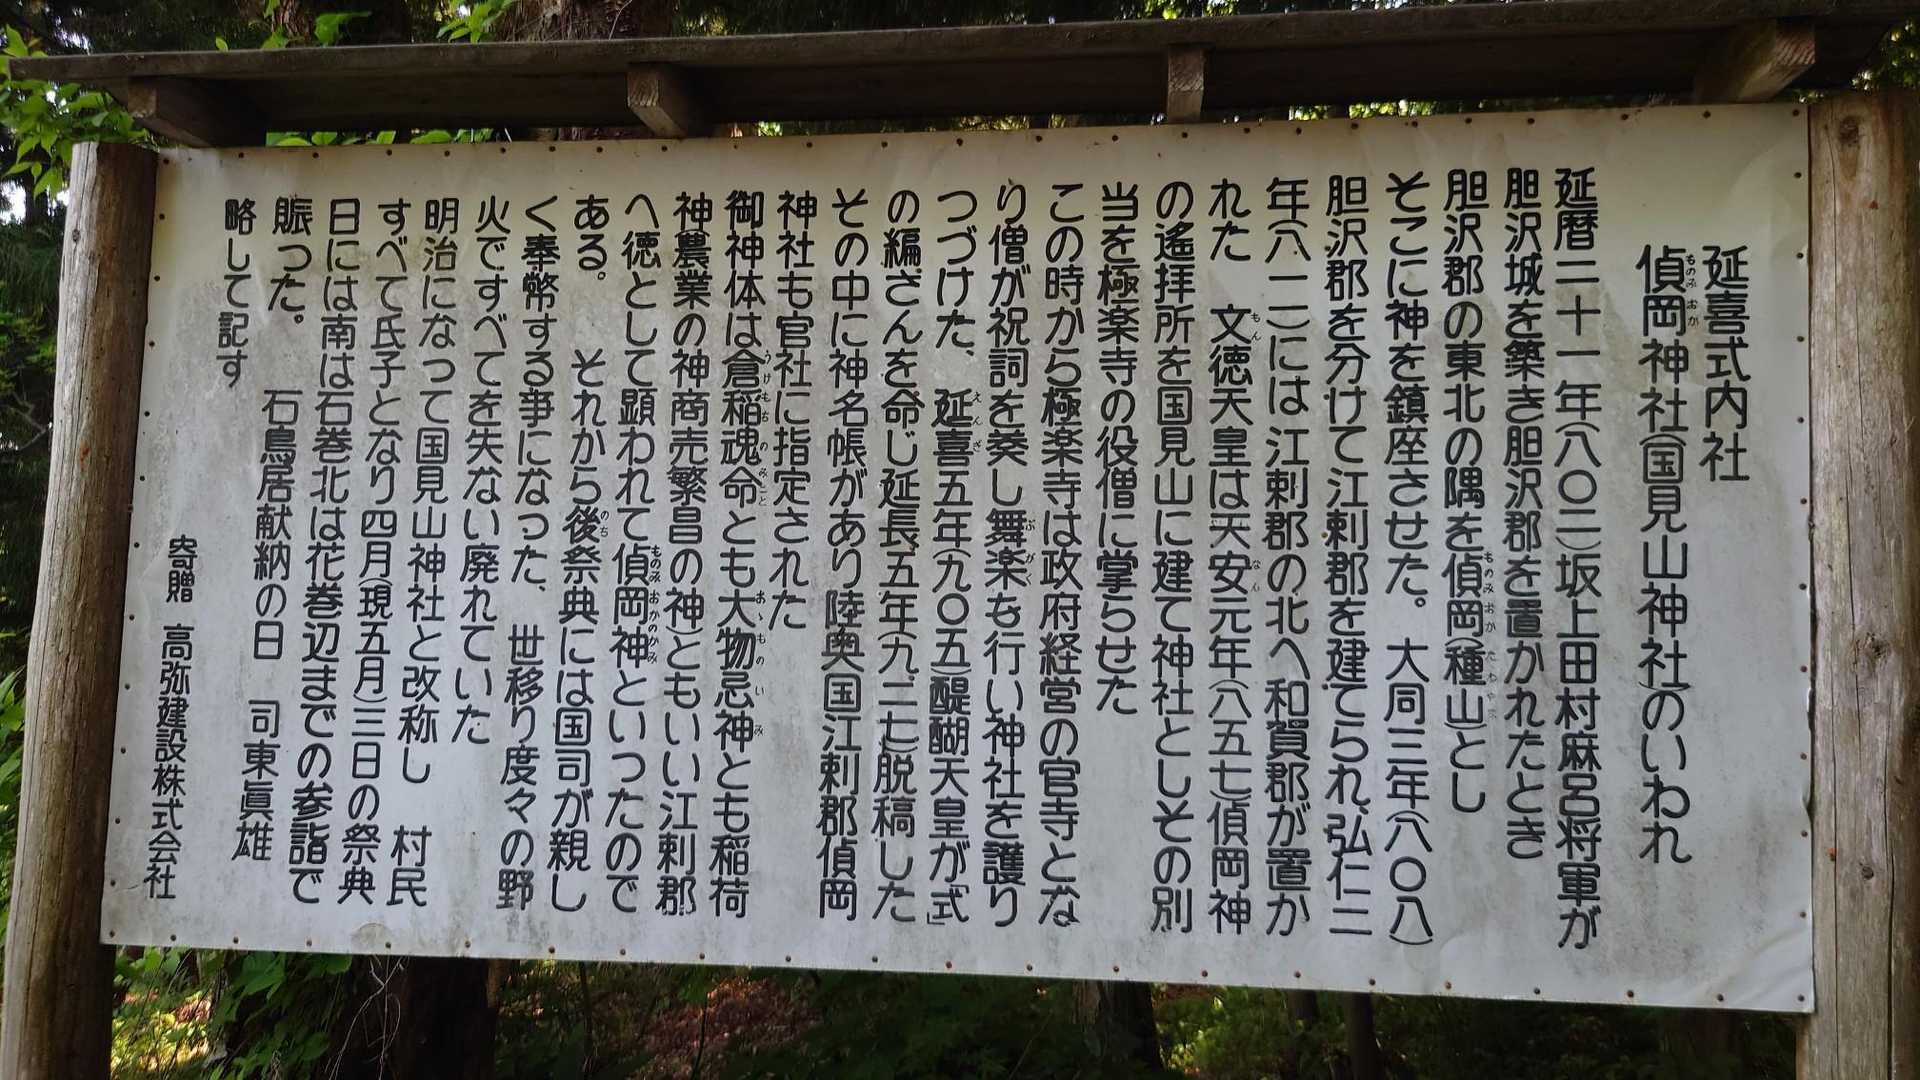 延喜式内社
偵岡神社(国見山神社)のいわれ
延暦二十一年(八〇二)坂上田村麻呂将軍が
胆沢城を築き胆沢郡を置かれたとき
胆沢郡の東北の隅を偵岡(種山)とし
そこに神を鎮座させた。大同三年(八〇八)
胆沢郡を分けて江刺郡を建てられ、弘仁二
年(八一一)には江刺郡の北へ和賀郡が置か
れた 文徳天皇は天安元年(八五七)偵岡神
の遙拝所を国見山に建て神社としその別
当を極楽寺の役僧に掌らせた
この時から極楽寺は政府経営の官寺とな
り僧が祝詞を奏し舞楽も行い神社を護り
つづけた、延喜五年(九〇五)醍醐天皇が「式」
の編さんを命じ延長五年(九二七)脱稿した
その中に神名帳があり陸奥国江刺郡偵岡
神社も官社に指定された
御神体は倉稲魂命とも大物忌神とも稲荷
神(農業の神商売繁昌の神)ともいい江刺郡
へ徳として顕われて偵岡神といったので
ある。 それから後祭典には国司が親し
く奉幣する事になった、世移り度々の野
火ですべてを失ない廃れていた
明治になって国見山神社と改称し 村民
すべて氏子となり四月(現五月)三日の祭典
日には南は石巻北は花巻辺までの参詣で
賑った。 石鳥居献納の日 司東眞雄
略して記す
寄贈 高弥建設株式会社